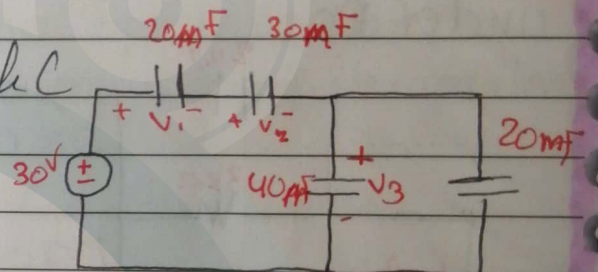 20mF 30mF
+ V1 - + V2 -
30V + - 40mF + V3 - 20mF